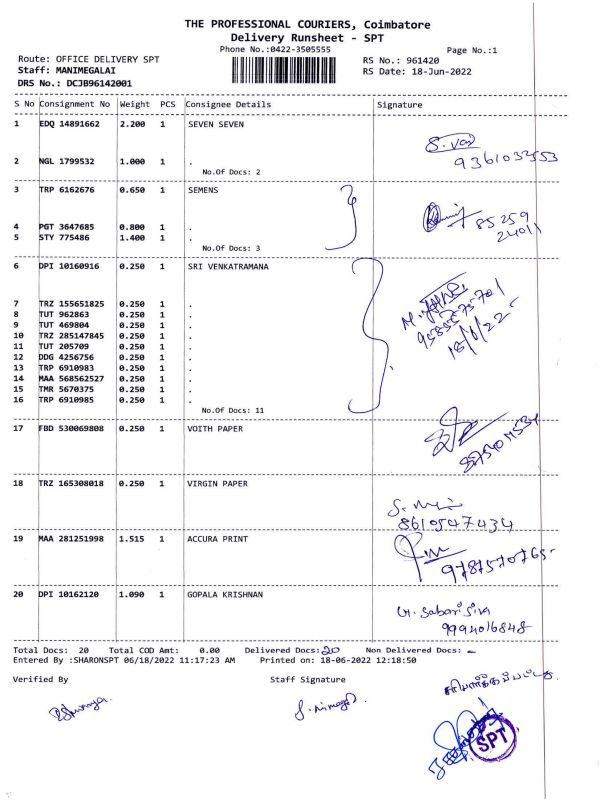 THE PROFESSIONAL COURIERS, Coimbatore
Delivery Runsheet - SPT
Phone No.:0422-3505555
Page No.:1
Route: OFFICE DELIVERY SPT
RS No.: 961420
Staff: MANIMEGALAI
RS Date: 18-Jun-2022
DRS No.: DCJB96142001
S No Consignment No Weight PCS Consignee Details Signature
1 EDQ 14891662 2.200 1 SEVEN SEVEN
9361032553
2 NGL 1799532 1.000 1 .
No.Of Docs: 2
3 TRP 6162676 0.650 1 SEMENS
85259
24011
4 PGT 3647685 0.800 1 .
5 STY 775486 1.400 1 .
No.Of Docs: 3
6 DPI 10160916 0.250 1 SRI VENKATRAMANA
18/6/22
7 TRZ 155651825 0.250 1 .
8 TUT 962863 0.250 1 .
9 TUT 469804 0.250 1 .
10 TRZ 285147845 0.250 1 .
11 TUT 205709 0.250 1 .
12 DDG 4256756 0.250 1 .
13 TRP 6910983 0.250 1 .
14 MAA 568562527 0.250 1 .
15 TMR 5670375 0.250 1 .
16 TRP 6910985 0.250 1 .
No.Of Docs: 11
17 FBD 530069808 0.250 1 VOITH PAPER
18 TRZ 165308018 0.250 1 VIRGIN PAPER
8610547434
19 MAA 281251998 1.515 1 ACCURA PRINT
9787570765
20 DPI 10162120 1.090 1 GOPALA KRISHNAN
9994016848
Total Docs: 20 Total COD Amt: 0.00 Delivered Docs: 20 Non Delivered Docs: -
Entered By :SHARONSPT 06/18/2022 11:17:23 AM Printed on: 18-06-2022 12:18:50
Verified By Staff Signature
சரிபார்க்கப்பட்டது
SPT